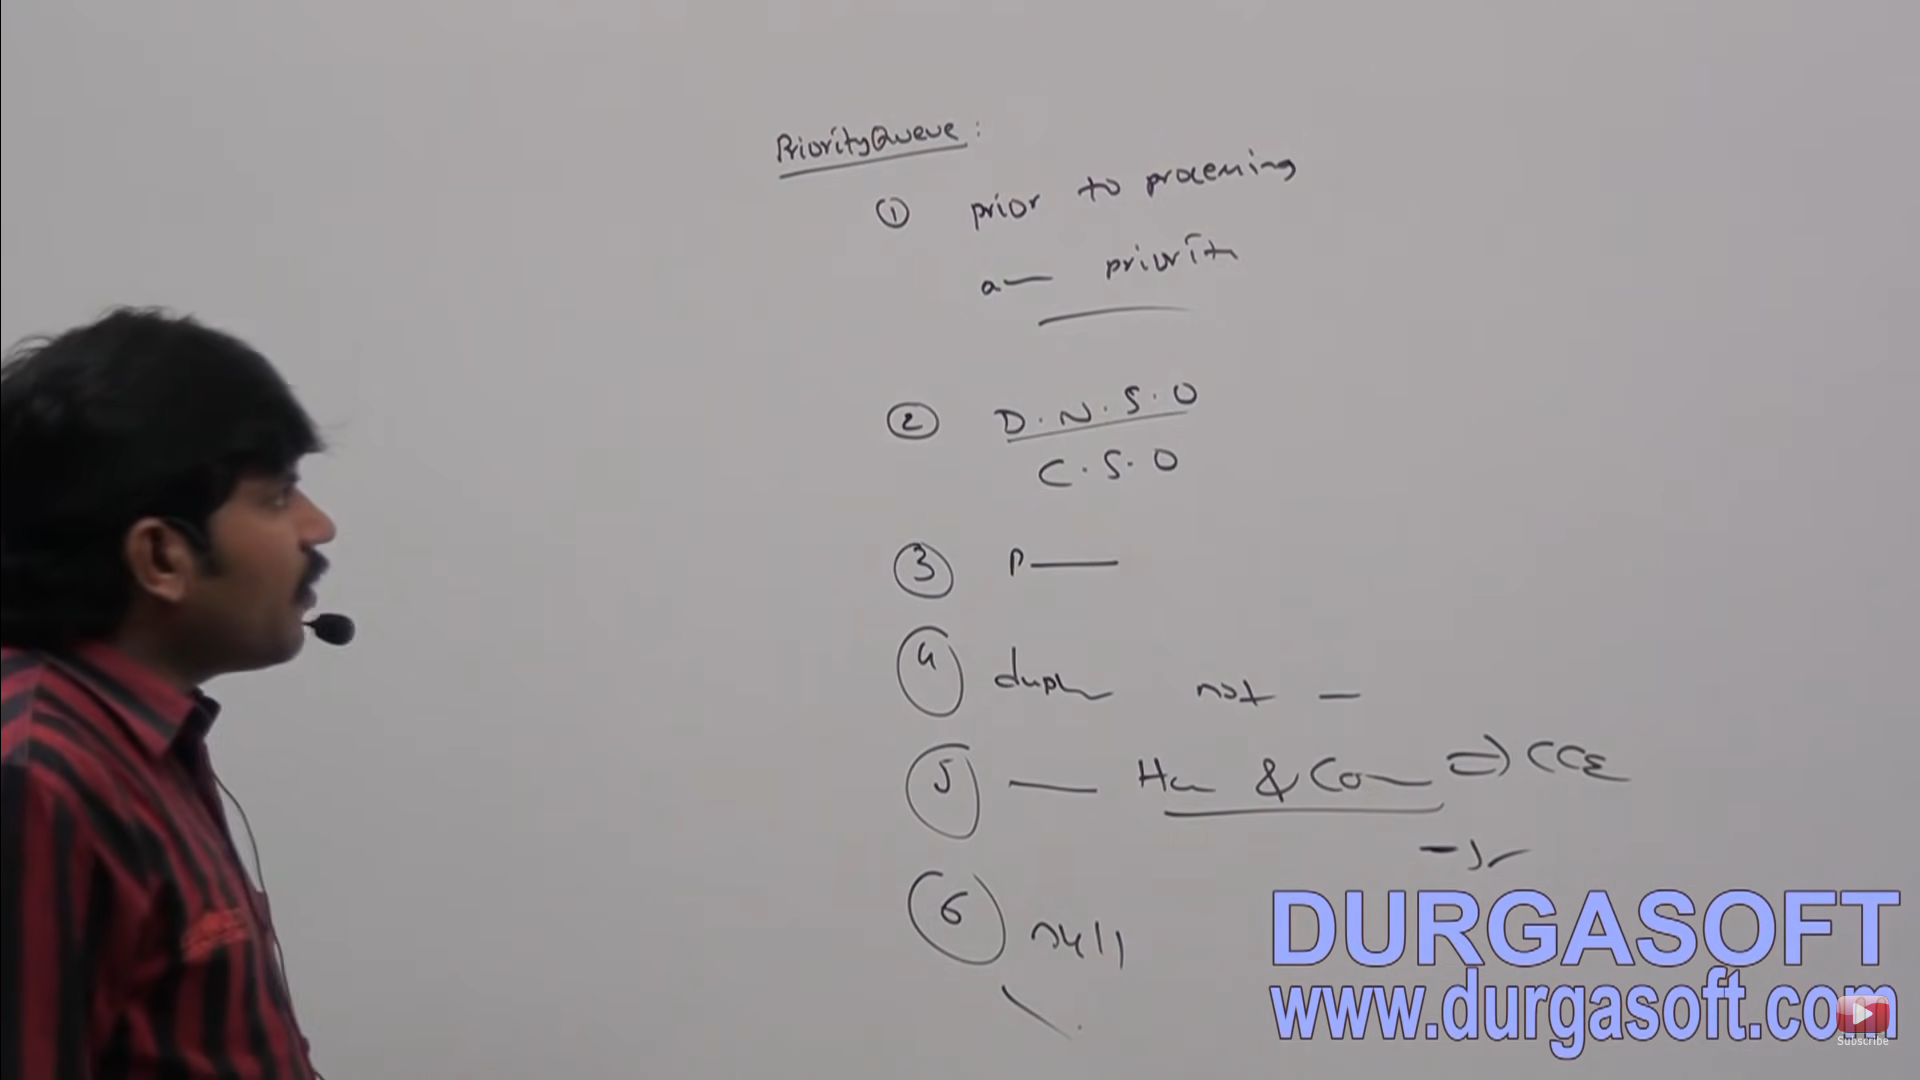 PriorityQueue :
① prior to processing
a— priorit
② D.N.S.O
C.S.O
③ P—
④ dupl not —
⑤ — H & Co ⇒ CCE
⑥ null
DURGASOFT
www.durgasoft.com
Subscribe